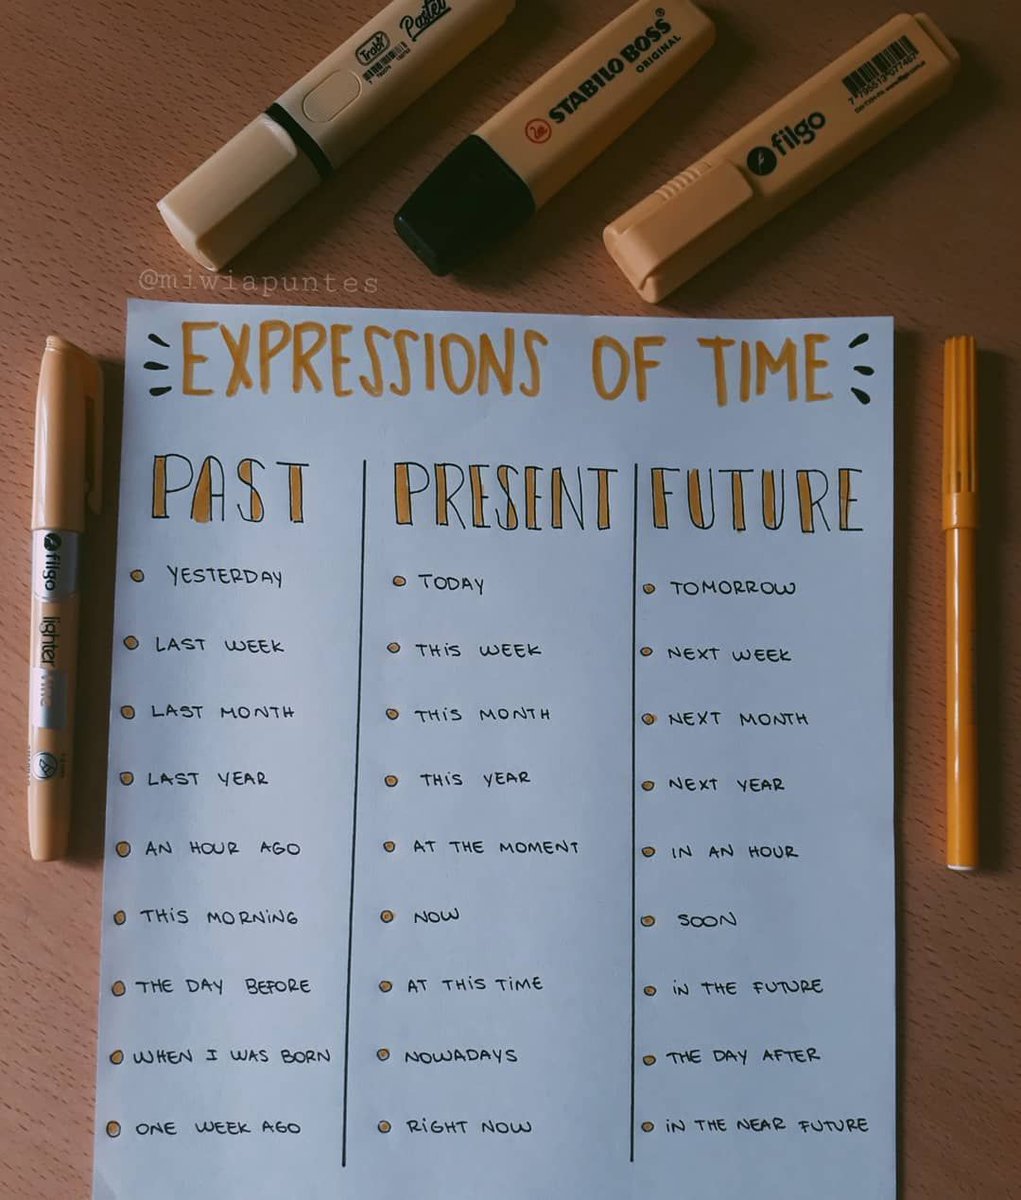 Trabi
Pastel
STABILO BOSS®
ORIGINAL
filgo
@miwiapuntes
EXPRESSIONS OF TIME
PAST
YESTERDAY
LAST WEEK
LAST MONTH
LAST YEAR
AN HOUR AGO
THIS MORNING
THE DAY BEFORE
WHEN I WAS BORN
ONE WEEK AGO
PRESENT
TODAY
THIS WEEK
THIS MONTH
THIS YEAR
AT THE MOMENT
NOW
AT THIS TIME
NOWADAYS
RIGHT NOW
FUTURE
TOMORROW
NEXT WEEK
NEXT MONTH
NEXT YEAR
IN AN HOUR
SOON
IN THE FUTURE
THE DAY AFTER
IN THE NEAR FUTURE
filgo lighter fine